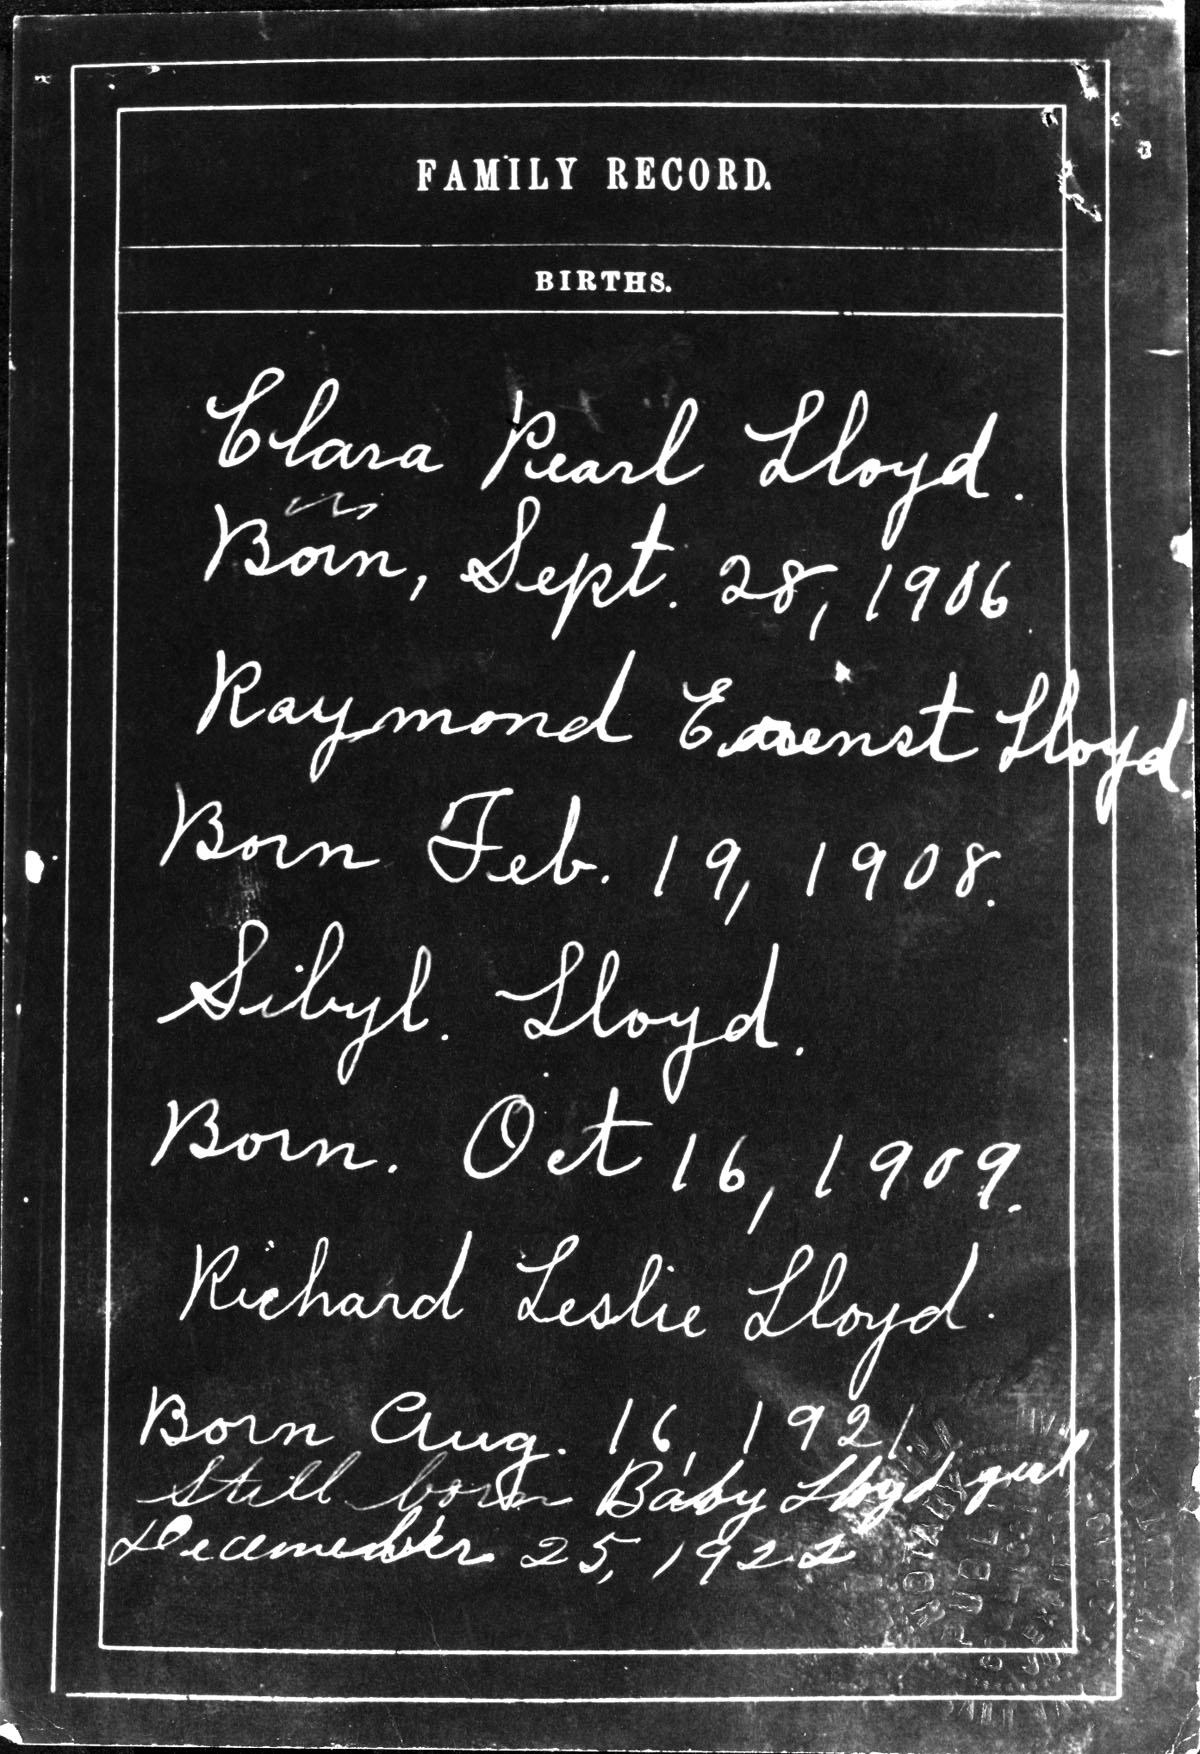 FAMILY RECORD.
BIRTHS.
Clara Pearl Lloyd.
Born, Sept. 28, 1906
Raymond Ernest Lloyd.
Born Feb. 19, 1908.
Sibyl. Lloyd.
Born. Oct 16, 1909.
Richard Leslie Lloyd.
Born Aug. 16, 1921.
Still born Baby Lloyd girl
December 25, 1922
NOTARY PUBLIC